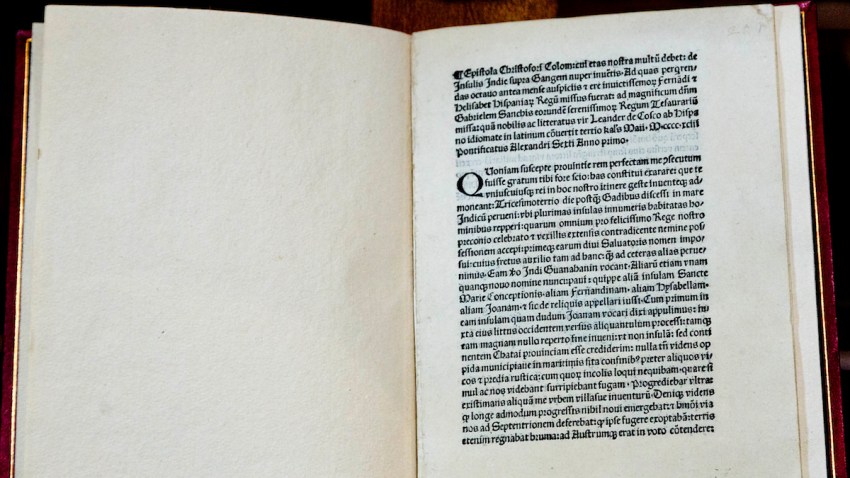 ¶ Epistola Christofori Colom: cui etas nostra multũ debet: de
Insulis Indie supra Gangem nuper inuẽtis. Ad quas perqren-
das octauo antea mense auspiciis et ere inuictissimorꝫ Fernãdi et
Helisabet Hispaniarꝫ Regũ missus fuerat: ad magnificum dñm
Gabrielem Sanchis eorundẽ serenissimorum Regum Tesaurariũ
missa: quã nobilis ac litteratus vir Leander de Cosco ab Hispa
no idiomate in latinum cõuertit tertio kalẽs Maii. M.cccc.xciii
Pontificatus Alexandri Sexti Anno primo.
Quoniam suscepte prouintie rem perfectam me ↄsecutum
fuisse gratum tibi fore scio: has constitui exarare: que te
vniuscuiusqꝫ rei in hoc nostro itinere geste inuenteqꝫ ad-
moneant: Tricesimotertio die postqꝫ Gadibus discessi in mare
Indicũ perueni: vbi plurimas insulas innumeris habitatas ho-
minibus repperi: quarum omnium pro felicissimo Rege nostro
preconio celebrato et vexillis extensis contradicente nemine pos-
sessionem accepi: primeqꝫ earum diui Saluatoris nomen impo-
sui: cuius fretus auxilio tam ad hanc: qꝫ ad ceteras alias perue-
nimus. Eam ꝟo Indi Guanahanin vocant. Aliarũ etiam vnam
quanqꝫ nouo nomine nuncupaui: quippe aliã insulam Sancte
Marie Conceptionis. aliam Fernandinam. aliam Hysabellam.
aliam Joanam. et sic de reliquis appellari iussi. Cum primum in
eam insulam quam dudum Joanam vocari dixi appulimus: iu-
xta eius littus occidentem versus aliquantulum processi: tamqꝫ
eam magnam nullo reperto fine inueni: vt non insulã: sed conti
nentem Chatai prouinciam esse crediderim: nulla tñ videns op
pida municipiaue in maritimis sita confinibꝫ preter aliquos vi-
cos et predia rustica: cum quorꝫ incolis loqui nequibam. quare si
mul ac nos videbant surripiebant fugam. Progrediebar vltra:
existimans aliquã me vrbem villasue inuenturũ. Deniqꝫ videns
qꝫ longe admodum progressis nihil noui emergebat: et hmõi via
nos ad Septentrionem deferebat: qꝫ ipse fugere exoptabã: terris
etenim regnabat bruma: ad Austrumqꝫ erat in voto cõtendere: